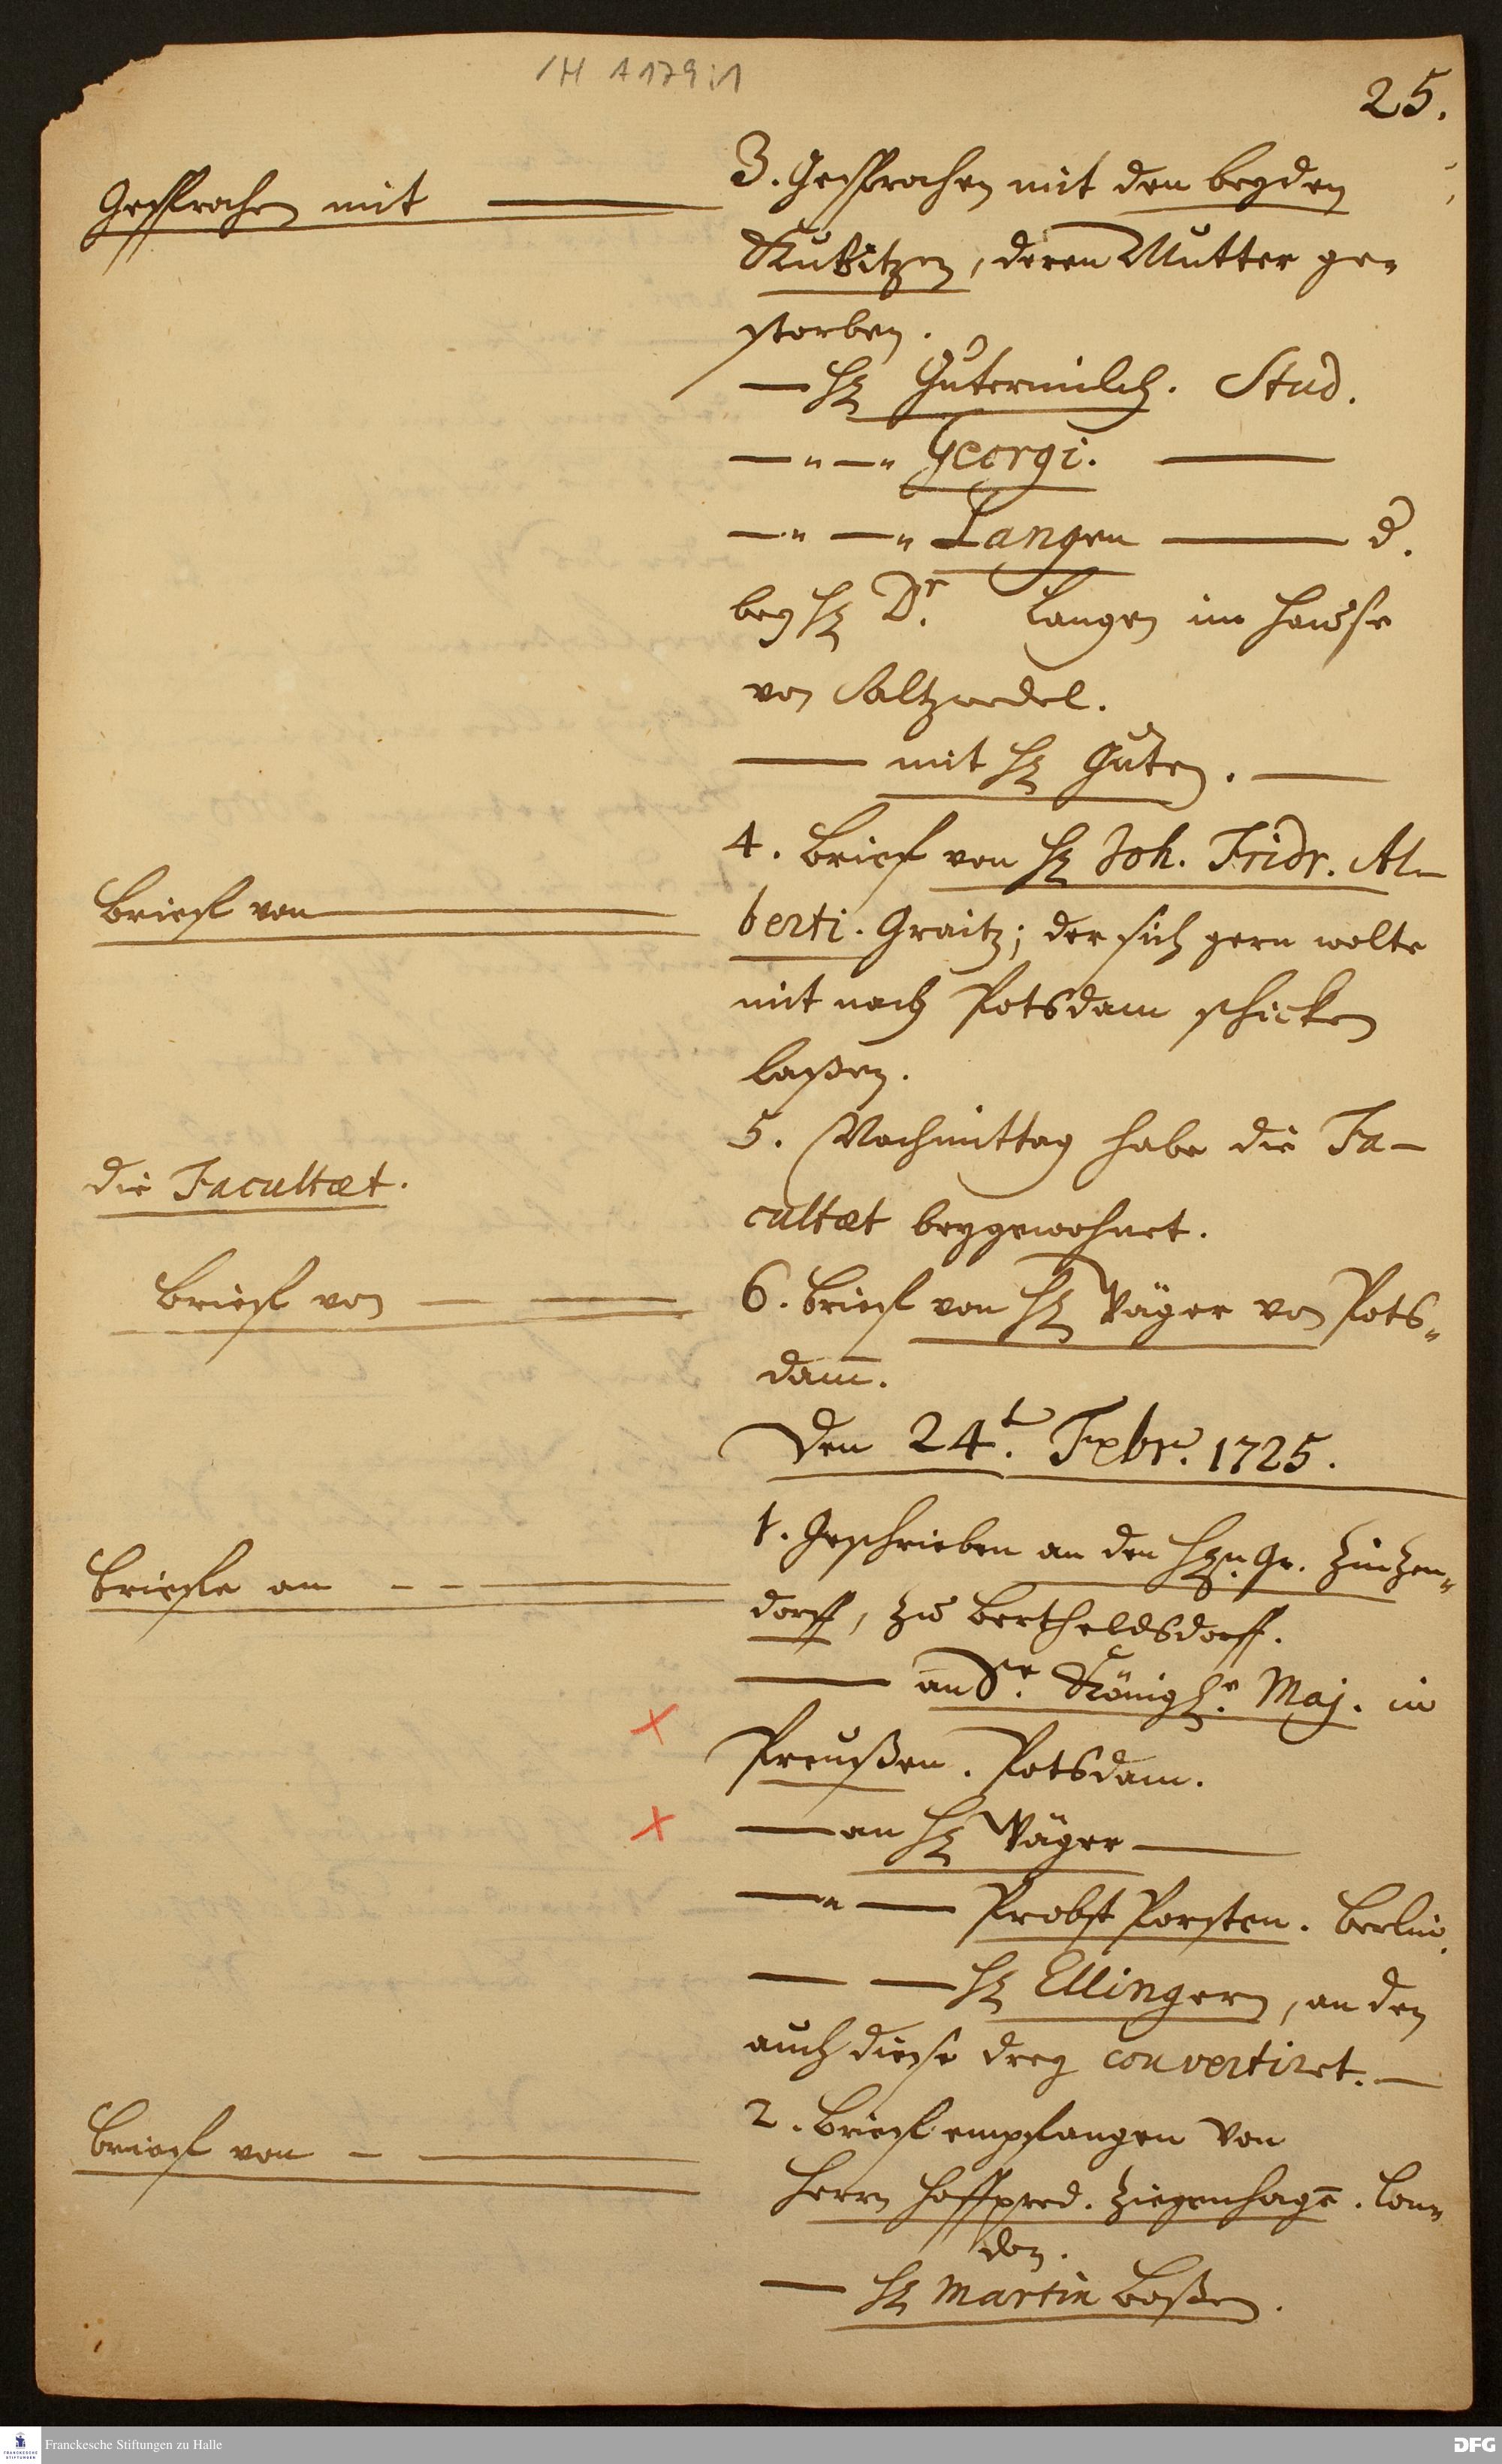 1H A 179:1
25.
Gesprochen mit
3. Gesprochen mit den beyden
Kubitzen, deren Mutter ge-
storben.
— H. Gutermilch. Stud.
—"—" Georgi. —
—" —" Langen — d.
bey H. Dr. Langen im Hause
von Saltzwedel.
— mit H. Guten. —
Brieff von
4. Brieff von H. Joh. Fridr. Al-
berti. Graitz; der sich gern wolte
mit nach Potsdam schicken
laßen.
5. Nachmittag habe die Fa-
die Facultæt.
cultæt beygewohnet.
Brieff von —
6. Brieff von H. Jäger von Pots-
dam̄.
Den 24t. Febr. 1725.
Brieffe an - - —
1. Geschrieben an den Hrn. Gr. Zinzen-
dorff, zu Bertheldsdorff.
— an Sr. Königl. Maj. in
Preußen. Potsdam.
— an H. Jäger —
—"— Probst Porsten. Berlin.
— — H. Ellingern, an den
auch diese drey couvertiret. —
Brieff von - —
2. Brieff empfangen von
Herrn Hoffpred. Ziegenhagē. Lon-
don.
— H. Martin Boßen.
Franckesche Stiftungen zu Halle
DFG